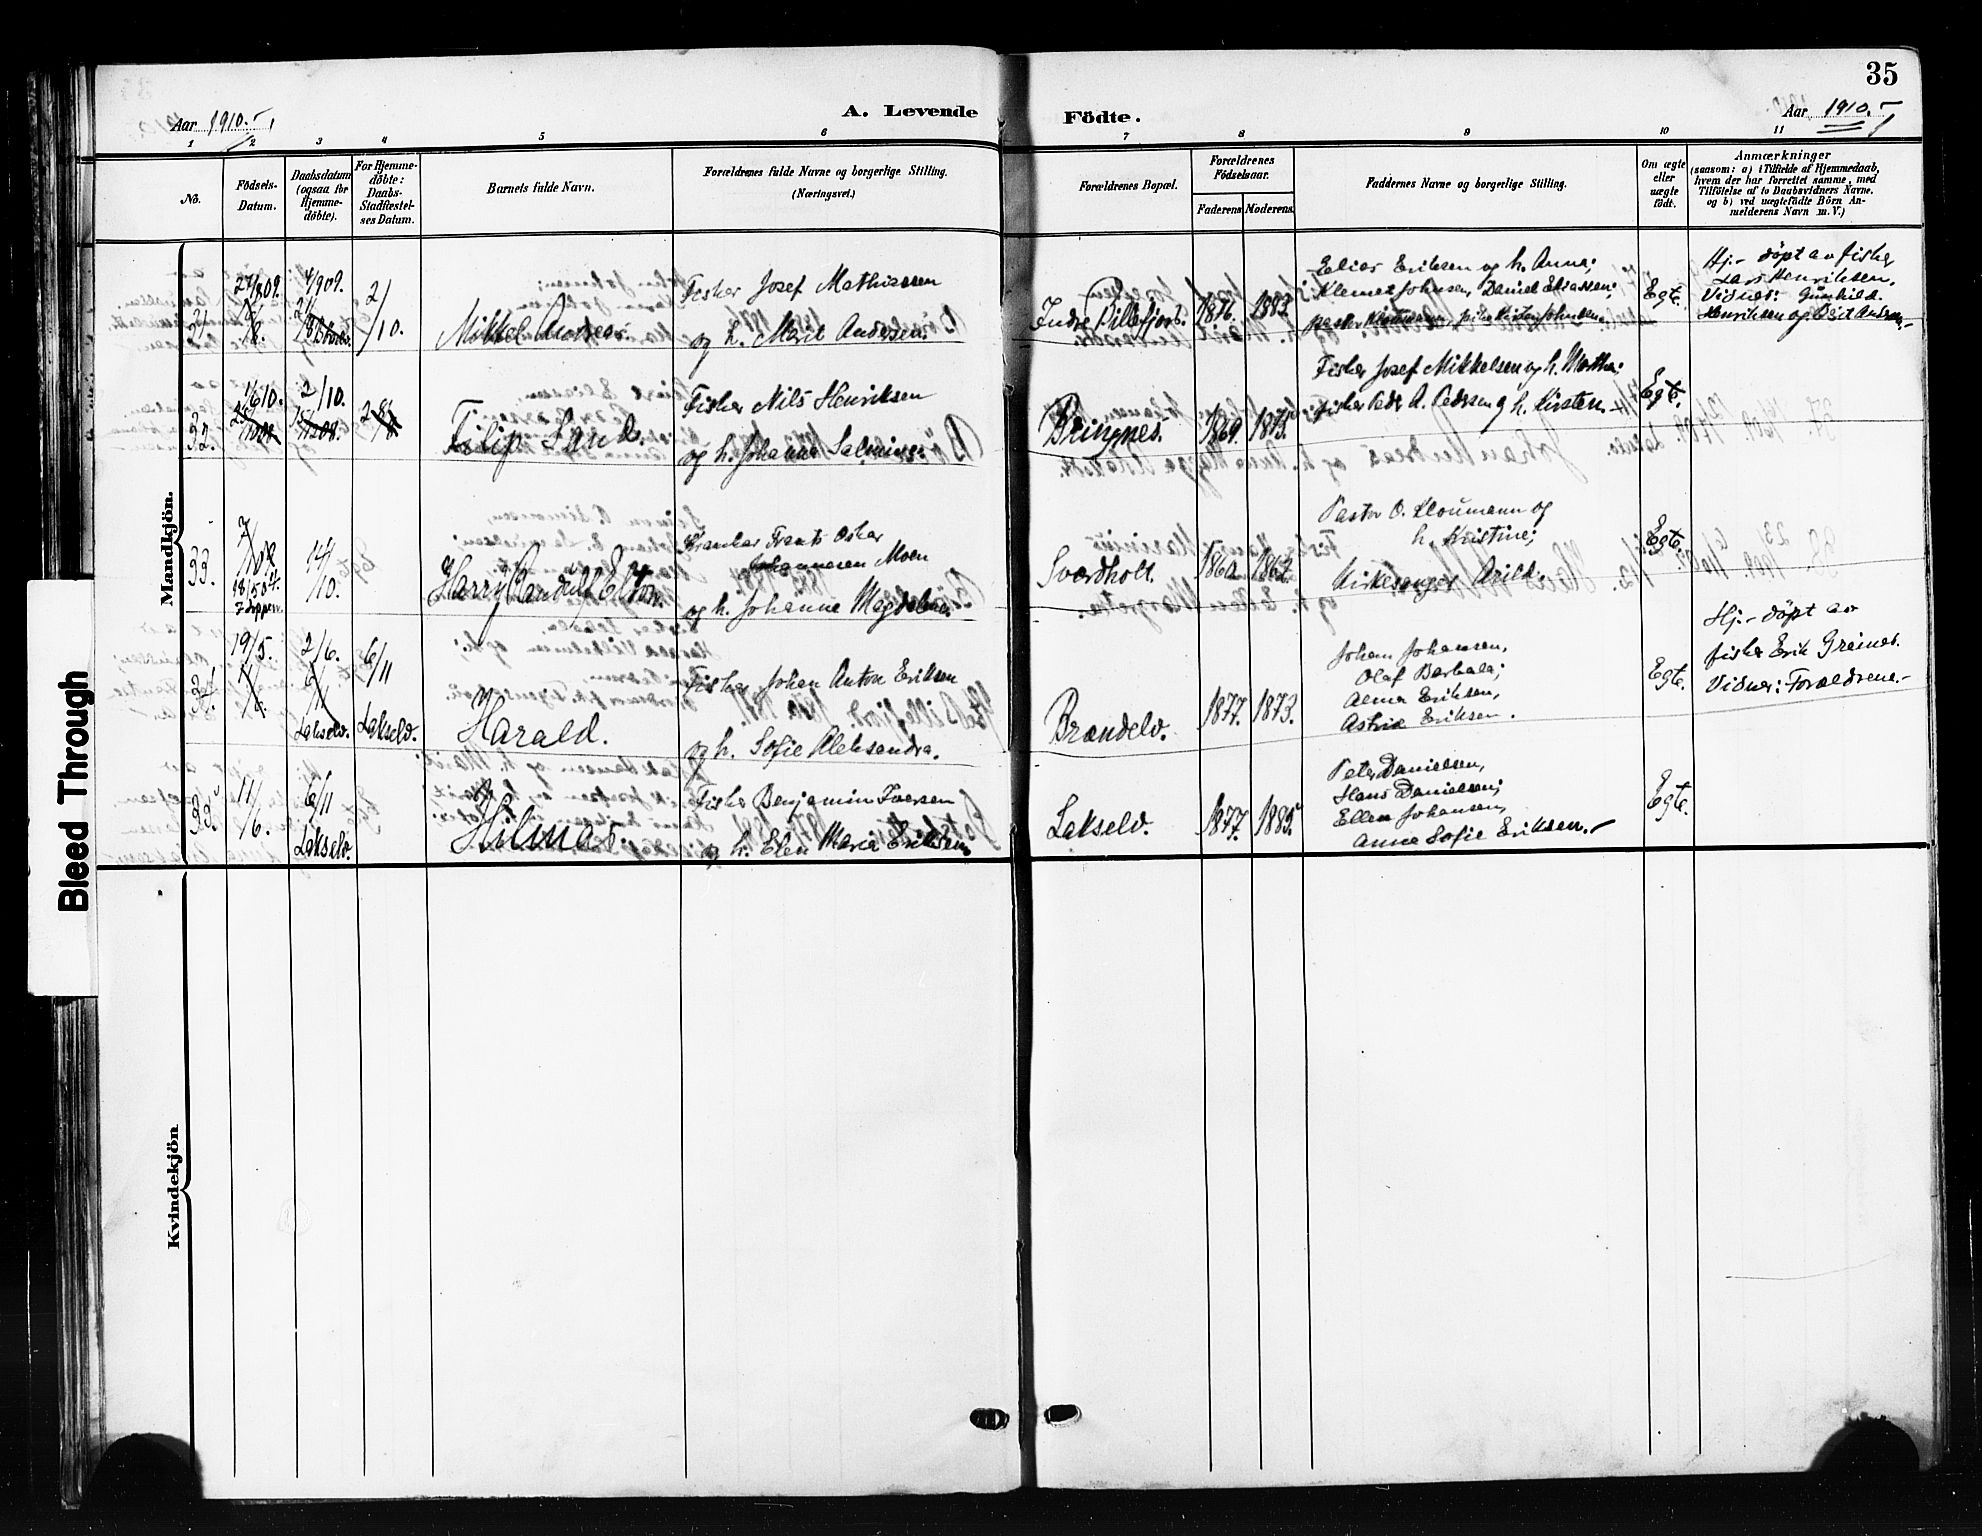 35
Aar 1910.
A. Levende
Födte.
Aar 1910.
1 2 3 4 5 6 7 8 9 10 11
No.
Födsels-
Datum.
Daabsdatum
(ogsaa for
Hjemme-
döbte).
For Hjemme-
döbte:
Daabs-
Stadfæstel-
ses Datum.
Barnets fulde Navn.
Forældrenes fulde Navne og borgerlige Stilling.
(Næringsvei.)
Forældrenes Bopæl.
Forældrenes
Födselsaar.
Faderens
Moderens.
Faddernes Navne og borgerlige Stilling.
Om ægte
eller
uægte
födt.
Anmærkninger
(saasom: a) i Tilfælde af Hjemmedaab,
hvem der har forrettet samme, med
Tilföielse af to Daabsvidners Navne.
og b) ved uægtefödte Börn An-
melderens Navn m. V.)
Mandkjön.
31.
2/10.
Mikkel Andreas.
Fisker Josef Mathiassen
og h. Marit Andersen.
Indre Billefjord.
1876.
1883.
Elias Eriksen og h. Anna;
Klemet Johnsen, Daniel Eliassen;
Egte.
Hj.- döpt av fisker
Lars Henriksen.
Vidner: Gunhild
Henriksen og Berit Andersen.-
32.
2/10.
Filip Sand.
Fisker Nils Henriksen
og h. Johanna Salmine.
Bringnes.
1869.
1875.
Fisker Josef Mikkelsen og h. Martha;
fisker Peder A. Pedersen og h. Kirsten.-
Egte.
33.
14/10.
Harry Randulf Elton.
Johannesen Moen
og h. Johanna Magdalena.
Sværdholt.
1862.
Pastor O. Kloumann og
h. Kristine;
Kirkesanger Arild.
Egte.
34.
19/5.
2/6.
6/11
Lakselv.
Lakselv.
Harald.
Fisker Johan Anton Eriksen
og h. Sofie Aleksandra.
Brændelv.
1877.
1873.
Johan Johansen,
Olaf Barbala;
Alma Eriksen,
Astrid Eriksen.
Egte.
Hj.- döpt av
fisker Erik Greines.
Vidner: Forældrene.-
35.
11/6.
6/11
Lakselv.
Hilmar.
Fisker Benjamin Iversen
og h. Elen Maria Eriksen.
Lakselv.
1877.
1885.
Peter Danielsen,
Hans Danielsen;
Ellen Johansen,
Anna Sofie Eriksen.-
Egte.
Kvindekjön
Bleed Through